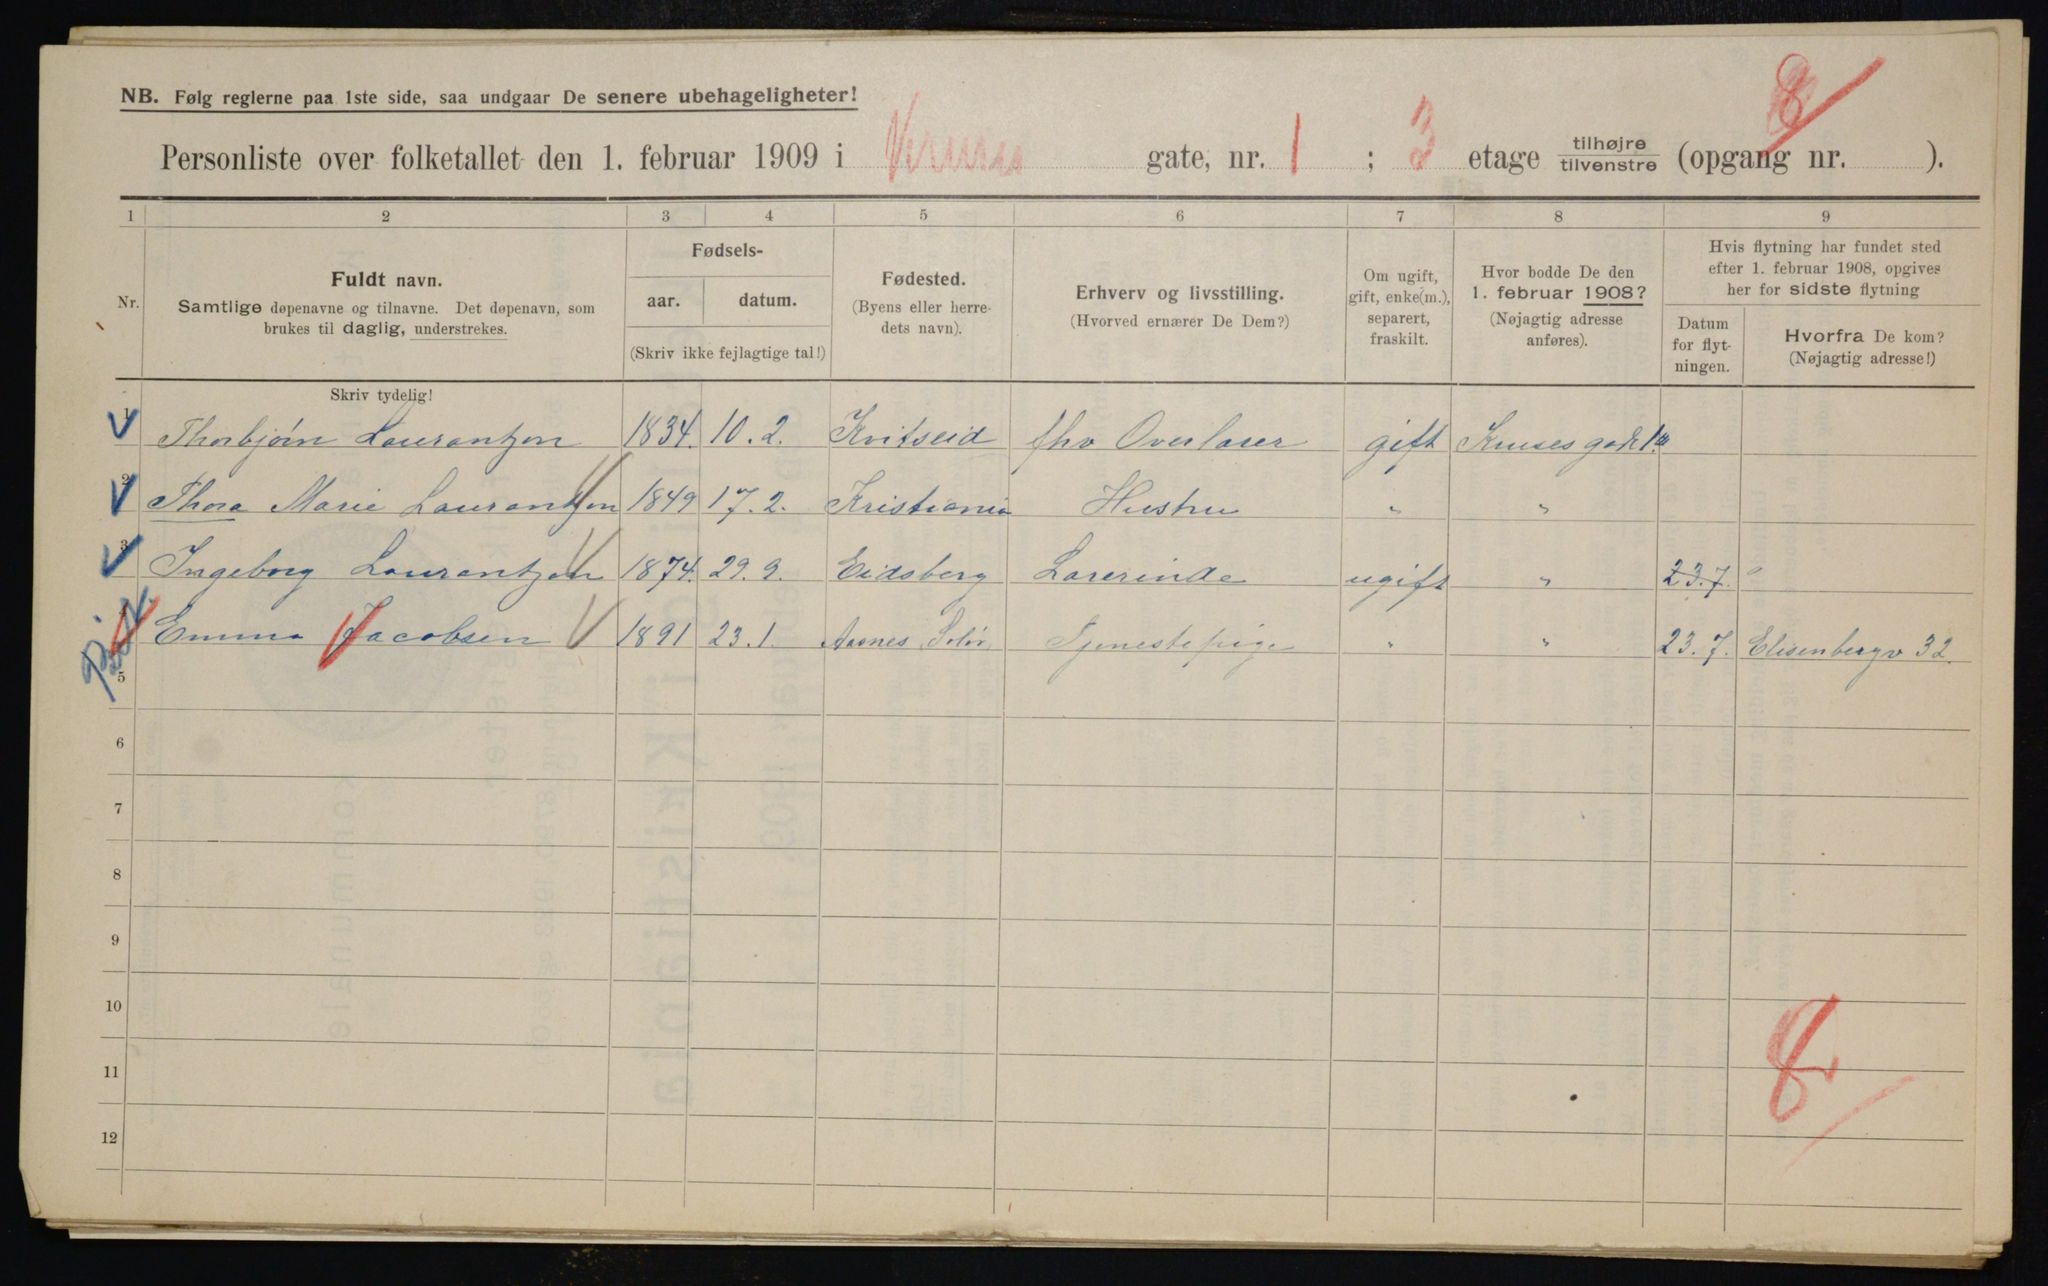 NB. Følg reglerne paa 1ste side, saa undgaar De senere ubehageligheter!
8
Personliste over folketallet den 1. februar 1909 i gate, nr. 1 ; 3 etage tilhøjre tilvenstre (opgang nr. ).
1 2 3 4 5 6 7 8 9
Nr.
Fuldt navn.
Samtlige døpenavne og tilnavne. Det døpenavn, som
brukes til daglig, understrekes.
Skriv tydelig!
Fødsels-
aar. datum.
(Skriv ikke fejlagtige tal!)
Fødested.
(Byens eller herre-
dets navn).
Erhverv og livsstilling.
(Hvorved ernærer De Dem?)
Om ugift,
gift, enke(m.),
separert,
fraskilt.
Hvor bodde De den
1. februar 1908?
(Nøjagtig adresse
anføres).
Hvis flytning har fundet sted
efter 1. februar 1908, opgives
her for sidste flytning
Datum
for flyt-
ningen.
Hvorfra De kom?
(Nøjagtig adresse!)
1 Thorbjörn Laurantzon 1834. 10. 2. Kvitseid fhv Overlærer gift Kruses gade 1
2 Thora Marie Laurantzon 1849 17. 2. Kristiania Hustru " "
3 Ingeborg Laurantzon 1874. 29. 9. Eidsberg Lærerinde ugift " 23. 7. "
4 Emma Jacobsen 1891 23. 1. Aasnes, Solör Tjenestepige " " 23. 7. Elisenbergv 32.
5
6
7
8
9
10
11
12
8